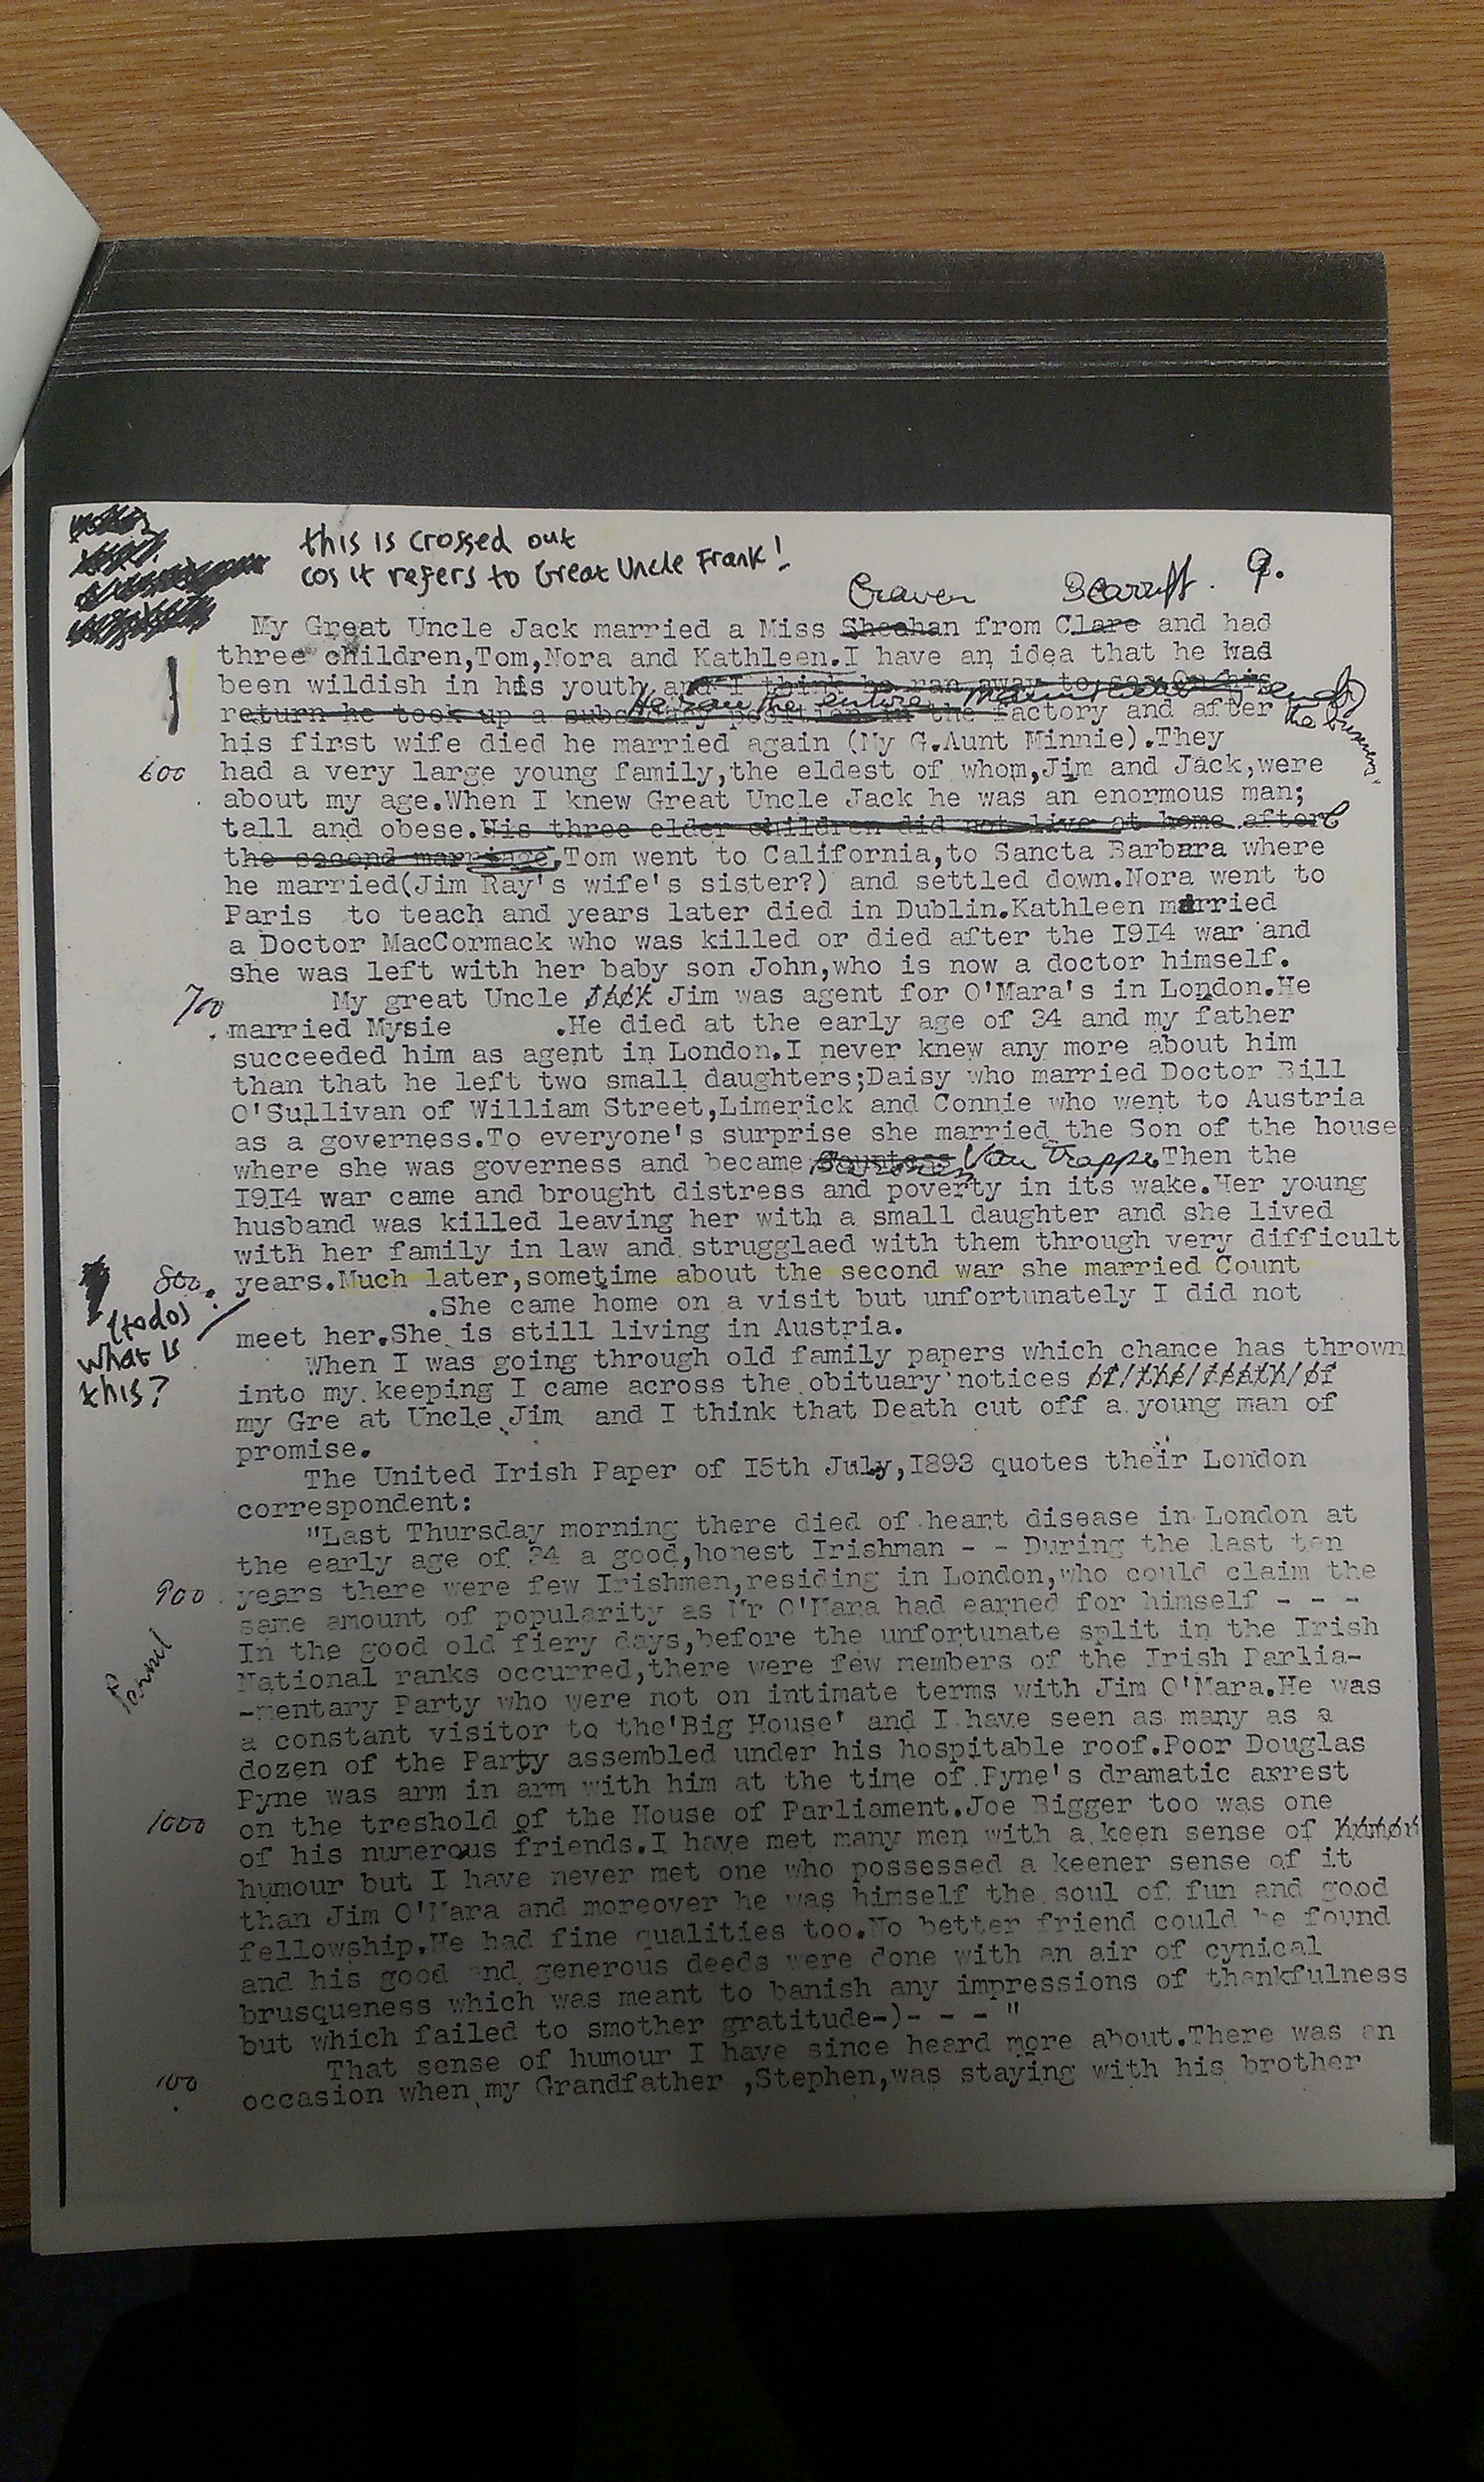 this is crossed out
cos it refers to Great Uncle Frank!
Craven Scarriff. 9.
My Great Uncle Jack married a Miss Sheahan from Clare and had
three children,Tom,Nora and Kathleen.I have an idea that he had
been wildish in his youth and I think he ran away to sea On his
He ran the entire end of
return he took up a subsidary position in the factory and after
the business
his first wife died he married again (My G.Aunt Minnie).They
600 had a very large young family,the eldest of whom,Jim and Jack,were
about my age.When I knew Great Uncle Jack he was an enormous man;
tall and obese.His three elder children did not live at home after
the second marriage.Tom went to California,to Sancta Barbara where
he married(Jim Ray's wife's sister?) and settled down.Nora went to
Paris to teach and years later died in Dublin.Kathleen married
a Doctor MacCormack who was killed or died after the I9I4 war and
she was left with her baby son John,who is now a doctor himself.
700 My great Uncle Jack Jim was agent for O'Mara's in London.He
married Mysie .He died at the early age of 34 and my father
succeeded him as agent in London.I never knew any more about him
than that he left two small daughters;Daisy who married Doctor Bill
O'Sullivan of William Street,Limerick and Connie who went to Austria
as a governess.To everyone's surprise she married the Son of the house
where she was governess and became Countess Baroness Van Trappe.Then the
I9I4 war came and brought distress and poverty in its wake.Her young
husband was killed leaving her with a small daughter and she lived
with her family in law and strugglaed with them through very difficult
800. years.Much later,sometime about the second war she married Count
.She came home on a visit but unfortunately I did not
(todo)
what is
this?
meet her.She is still living in Austria.
When I was going through old family papers which chance has thrown
into my keeping I came across the obituary notices of/the/death/of
my Gre at Uncle Jim and I think that Death cut off a young man of
promise.
The United Irish Paper of I5th July,I893 quotes their London
correspondent:
"Last Thursday morning there died of heart disease in London at
the early age of 34 a good,honest Irishman - - During the last ten
900 years there were few Irishmen,residing in London,who could claim the
same amount of popularity as Mr O'Mara had earned for himself - - -
In the good old fiery days,before the unfortunate split in the Irish
Parnel
National ranks occurred,there were few members of the Irish Parlia-
-mentary Party who were not on intimate terms with Jim O'Mara.He was
a constant visitor to the'Big House' and I have seen as many as a
dozen of the Party assembled under his hospitable roof.Poor Douglas
Pyne was arm in arm with him at the time of Pyne's dramatic arrest
1000 on the treshold of the House of Parliament.Joe Bigger too was one
of his numerous friends.I have met many men with a keen sense of humor
humour but I have never met one who possessed a keener sense of it
than Jim O'Mara and moreover he was himself the soul of fun and good
fellowship.He had fine qualities too.No better friend could be found
and his good and generous deeds were done with an air of cynical
brusqueness which was meant to banish any impressions of thankfulness
but which failed to smother gratitude-)- - - "
That sense of humour I have since heard more about.There was an
100 occasion when my Grandfather ,Stephen,was staying with his brother